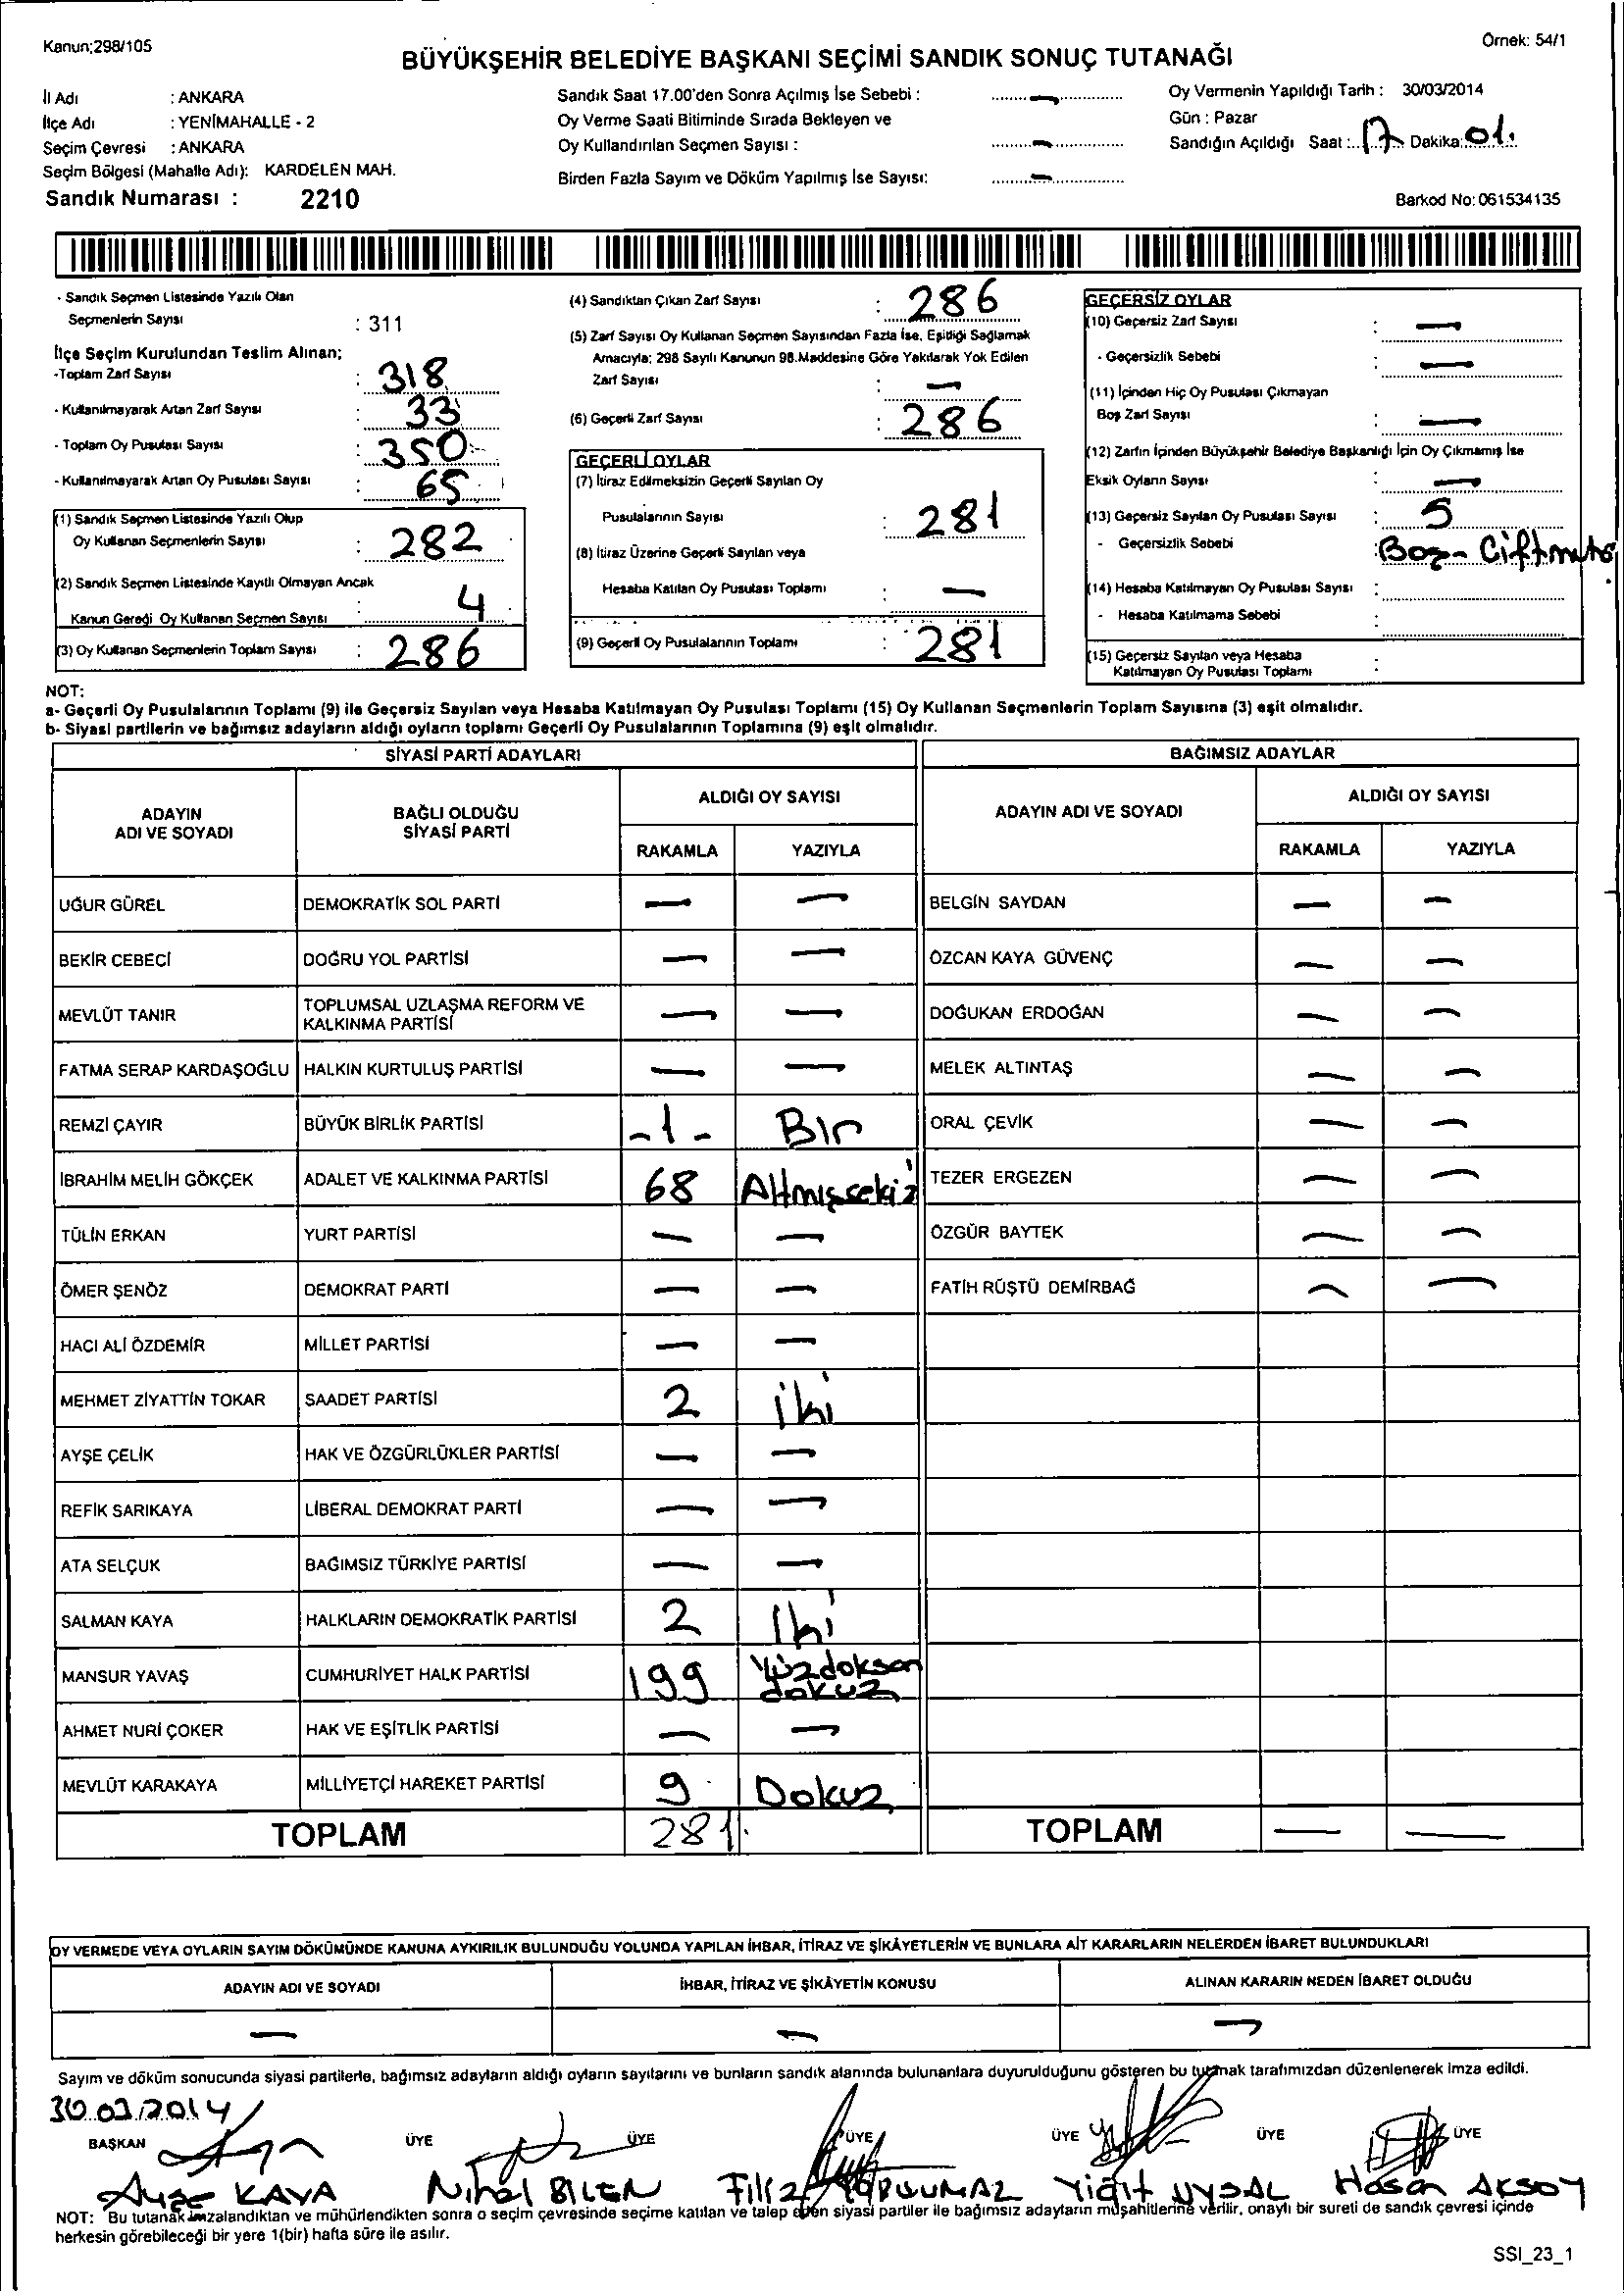 Kanun;298/105
Örnek: 54/1
BÜYÜKŞEHİR BELEDİYE BAŞKANI SEÇİMİ SANDIK SONUÇ TUTANAĞI
İl Adı : ANKARA
İlçe Adı : YENİMAHALLE - 2
Seçim Çevresi : ANKARA
Seçim Bölgesi (Mahalle Adı): KARDELEN MAH.
Sandık Numarası : 2210
Sandık Saat 17.00'den Sonra Açılmış İse Sebebi : —
Oy Verme Saati Bitiminde Sırada Bekleyen ve
Oy Kullandırılan Seçmen Sayısı : —
Birden Fazla Sayım ve Döküm Yapılmış İse Sayısı: —
Oy Vermenin Yapıldığı Tarih : 30/03/2014
Gün : Pazar
Sandığın Açıldığı Saat : 17 Dakika: 01
Barkod No: 061534135
- Sandık Seçmen Listesinde Yazılı Olan
Seçmenlerin Sayısı : 311
İlçe Seçim Kurulundan Teslim Alınan;
-Toplam Zarf Sayısı : 318
- Kullanılmayarak Artan Zarf Sayısı : 33
- Toplam Oy Pusulası Sayısı : 350
- Kullanılmayarak Artan Oy Pusulası Sayısı : 65
(1) Sandık Seçmen Listesinde Yazılı Olup
Oy Kullanan Seçmenlerin Sayısı : 282
(2) Sandık Seçmen Listesinde Kayıtlı Olmayan Ancak
Kanun Gereği Oy Kullanan Seçmen Sayısı : 4
(3) Oy Kullanan Seçmenlerin Toplam Sayısı : 286
(4) Sandıktan Çıkan Zarf Sayısı : 286
(5) Zarf Sayısı Oy Kullanan Seçmen Sayısından Fazla İse, Eşitliği Sağlamak
Amacıyla; 298 Sayılı Kanunun 98.Maddesine Göre Yakılarak Yok Edilen
Zarf Sayısı : —
(6) Geçerli Zarf Sayısı : 286
GEÇERLİ OYLAR
(7) İtiraz Edilmeksizin Geçerli Sayılan Oy
Pusulalarının Sayısı : 281
(8) İtiraz Üzerine Geçerli Sayılan veya
Hesaba Katılan Oy Pusulası Toplamı : —
(9) Geçerli Oy Pusulalarının Toplamı : 281
GEÇERSİZ OYLAR
(10) Geçersiz Zarf Sayısı : —
- Geçersizlik Sebebi : —
(11) İçinden Hiç Oy Pusulası Çıkmayan
Boş Zarf Sayısı : —
(12) Zarfın İçinden Büyükşehir Belediye Başkanlığı İçin Oy Çıkmamış İse
Eksik Oyların Sayısı : —
(13) Geçersiz Sayılan Oy Pusulası Sayısı : 5
- Geçersizlik Sebebi : Boş-
(14) Hesaba Katılmayan Oy Pusulası Sayısı :
- Hesaba Katılmama Sebebi :
(15) Geçersiz Sayılan veya Hesaba
Katılmayan Oy Pusulası Toplamı :
NOT:
a- Geçerli Oy Pusulalarının Toplamı (9) ile Geçersiz Sayılan veya Hesaba Katılmayan Oy Pusulası Toplamı (15) Oy Kullanan Seçmenlerin Toplam Sayısına (3) eşit olmalıdır.
b- Siyasi partilerin ve bağımsız adayların aldığı oyların toplamı Geçerli Oy Pusulalarının Toplamına (9) eşit olmalıdır.
SİYASİ PARTİ ADAYLARI
BAĞIMSIZ ADAYLAR
ADAYIN ADI VE SOYADI
BAĞLI OLDUĞU SİYASİ PARTİ
ALDIĞI OY SAYISI
RAKAMLA YAZIYLA
ADAYIN ADI VE SOYADI
ALDIĞI OY SAYISI
RAKAMLA YAZIYLA
UĞUR GÜREL DEMOKRATİK SOL PARTİ — — BELGİN SAYDAN — —
BEKİR CEBECİ DOĞRU YOL PARTİSİ — — ÖZCAN KAYA GÜVENÇ — —
MEVLÜT TANIR TOPLUMSAL UZLAŞMA REFORM VE KALKINMA PARTİSİ — — DOĞUKAN ERDOĞAN — —
FATMA SERAP KARDAŞOĞLU HALKIN KURTULUŞ PARTİSİ — — MELEK ALTINTAŞ — —
REMZİ ÇAYIR BÜYÜK BİRLİK PARTİSİ -1- Bir ORAL ÇEVİK — —
İBRAHİM MELİH GÖKÇEK ADALET VE KALKINMA PARTİSİ 68 Altmışsekiz TEZER ERGEZEN — —
TÜLİN ERKAN YURT PARTİSİ — — ÖZGÜR BAYTEK — —
ÖMER ŞENÖZ DEMOKRAT PARTİ — — FATİH RÜŞTÜ DEMİRBAĞ — —
HACI ALİ ÖZDEMİR MİLLET PARTİSİ — —
MEHMET ZİYATTİN TOKAR SAADET PARTİSİ 2 iki
AYŞE ÇELİK HAK VE ÖZGÜRLÜKLER PARTİSİ — —
REFİK SARIKAYA LİBERAL DEMOKRAT PARTİ — —
ATA SELÇUK BAĞIMSIZ TÜRKİYE PARTİSİ — —
SALMAN KAYA HALKLARIN DEMOKRATİK PARTİSİ 2 İki
MANSUR YAVAŞ CUMHURİYET HALK PARTİSİ 199 Yüzdoksan dokuz
AHMET NURİ ÇOKER HAK VE EŞİTLİK PARTİSİ — —
MEVLÜT KARAKAYA MİLLİYETÇİ HAREKET PARTİSİ 9 Dokuz
TOPLAM 281 TOPLAM — —
OY VERMEDE VEYA OYLARIN SAYIM DÖKÜMÜNDE KANUNA AYKIRILIK BULUNDUĞU YOLUNDA YAPILAN İHBAR, İTİRAZ VE ŞİKÂYETLERİN VE BUNLARA AİT KARARLARIN NELERDEN İBARET BULUNDUKLARI
ADAYIN ADI VE SOYADI İHBAR, İTİRAZ VE ŞİKÂYETİN KONUSU ALINAN KARARIN NEDEN İBARET OLDUĞU
— — —
Sayım ve döküm sonucunda siyasi partilerle, bağımsız adayların aldığı oyların sayılarını ve bunların sandık alanında bulunanlara duyurulduğunu gösteren bu tutanak tarafımızdan düzenlenerek imza edildi.
30.03.2014
BAŞKAN ÜYE ÜYE ÜYE ÜYE ÜYE ÜYE
Ayşe KAYA Nihal BİLEN Filiz Yiğit UYSAL Hasan AKSOY
NOT: Bu tutanak imzalandıktan ve mühürlendikten sonra o seçim çevresinde seçime katılan ve talep eden siyasi partiler ile bağımsız adayların müşahitlerine verilir, onaylı bir sureti de sandık çevresi içinde
herkesin görebileceği bir yere 1(bir) hafta süre ile asılır.
SSI_23_1